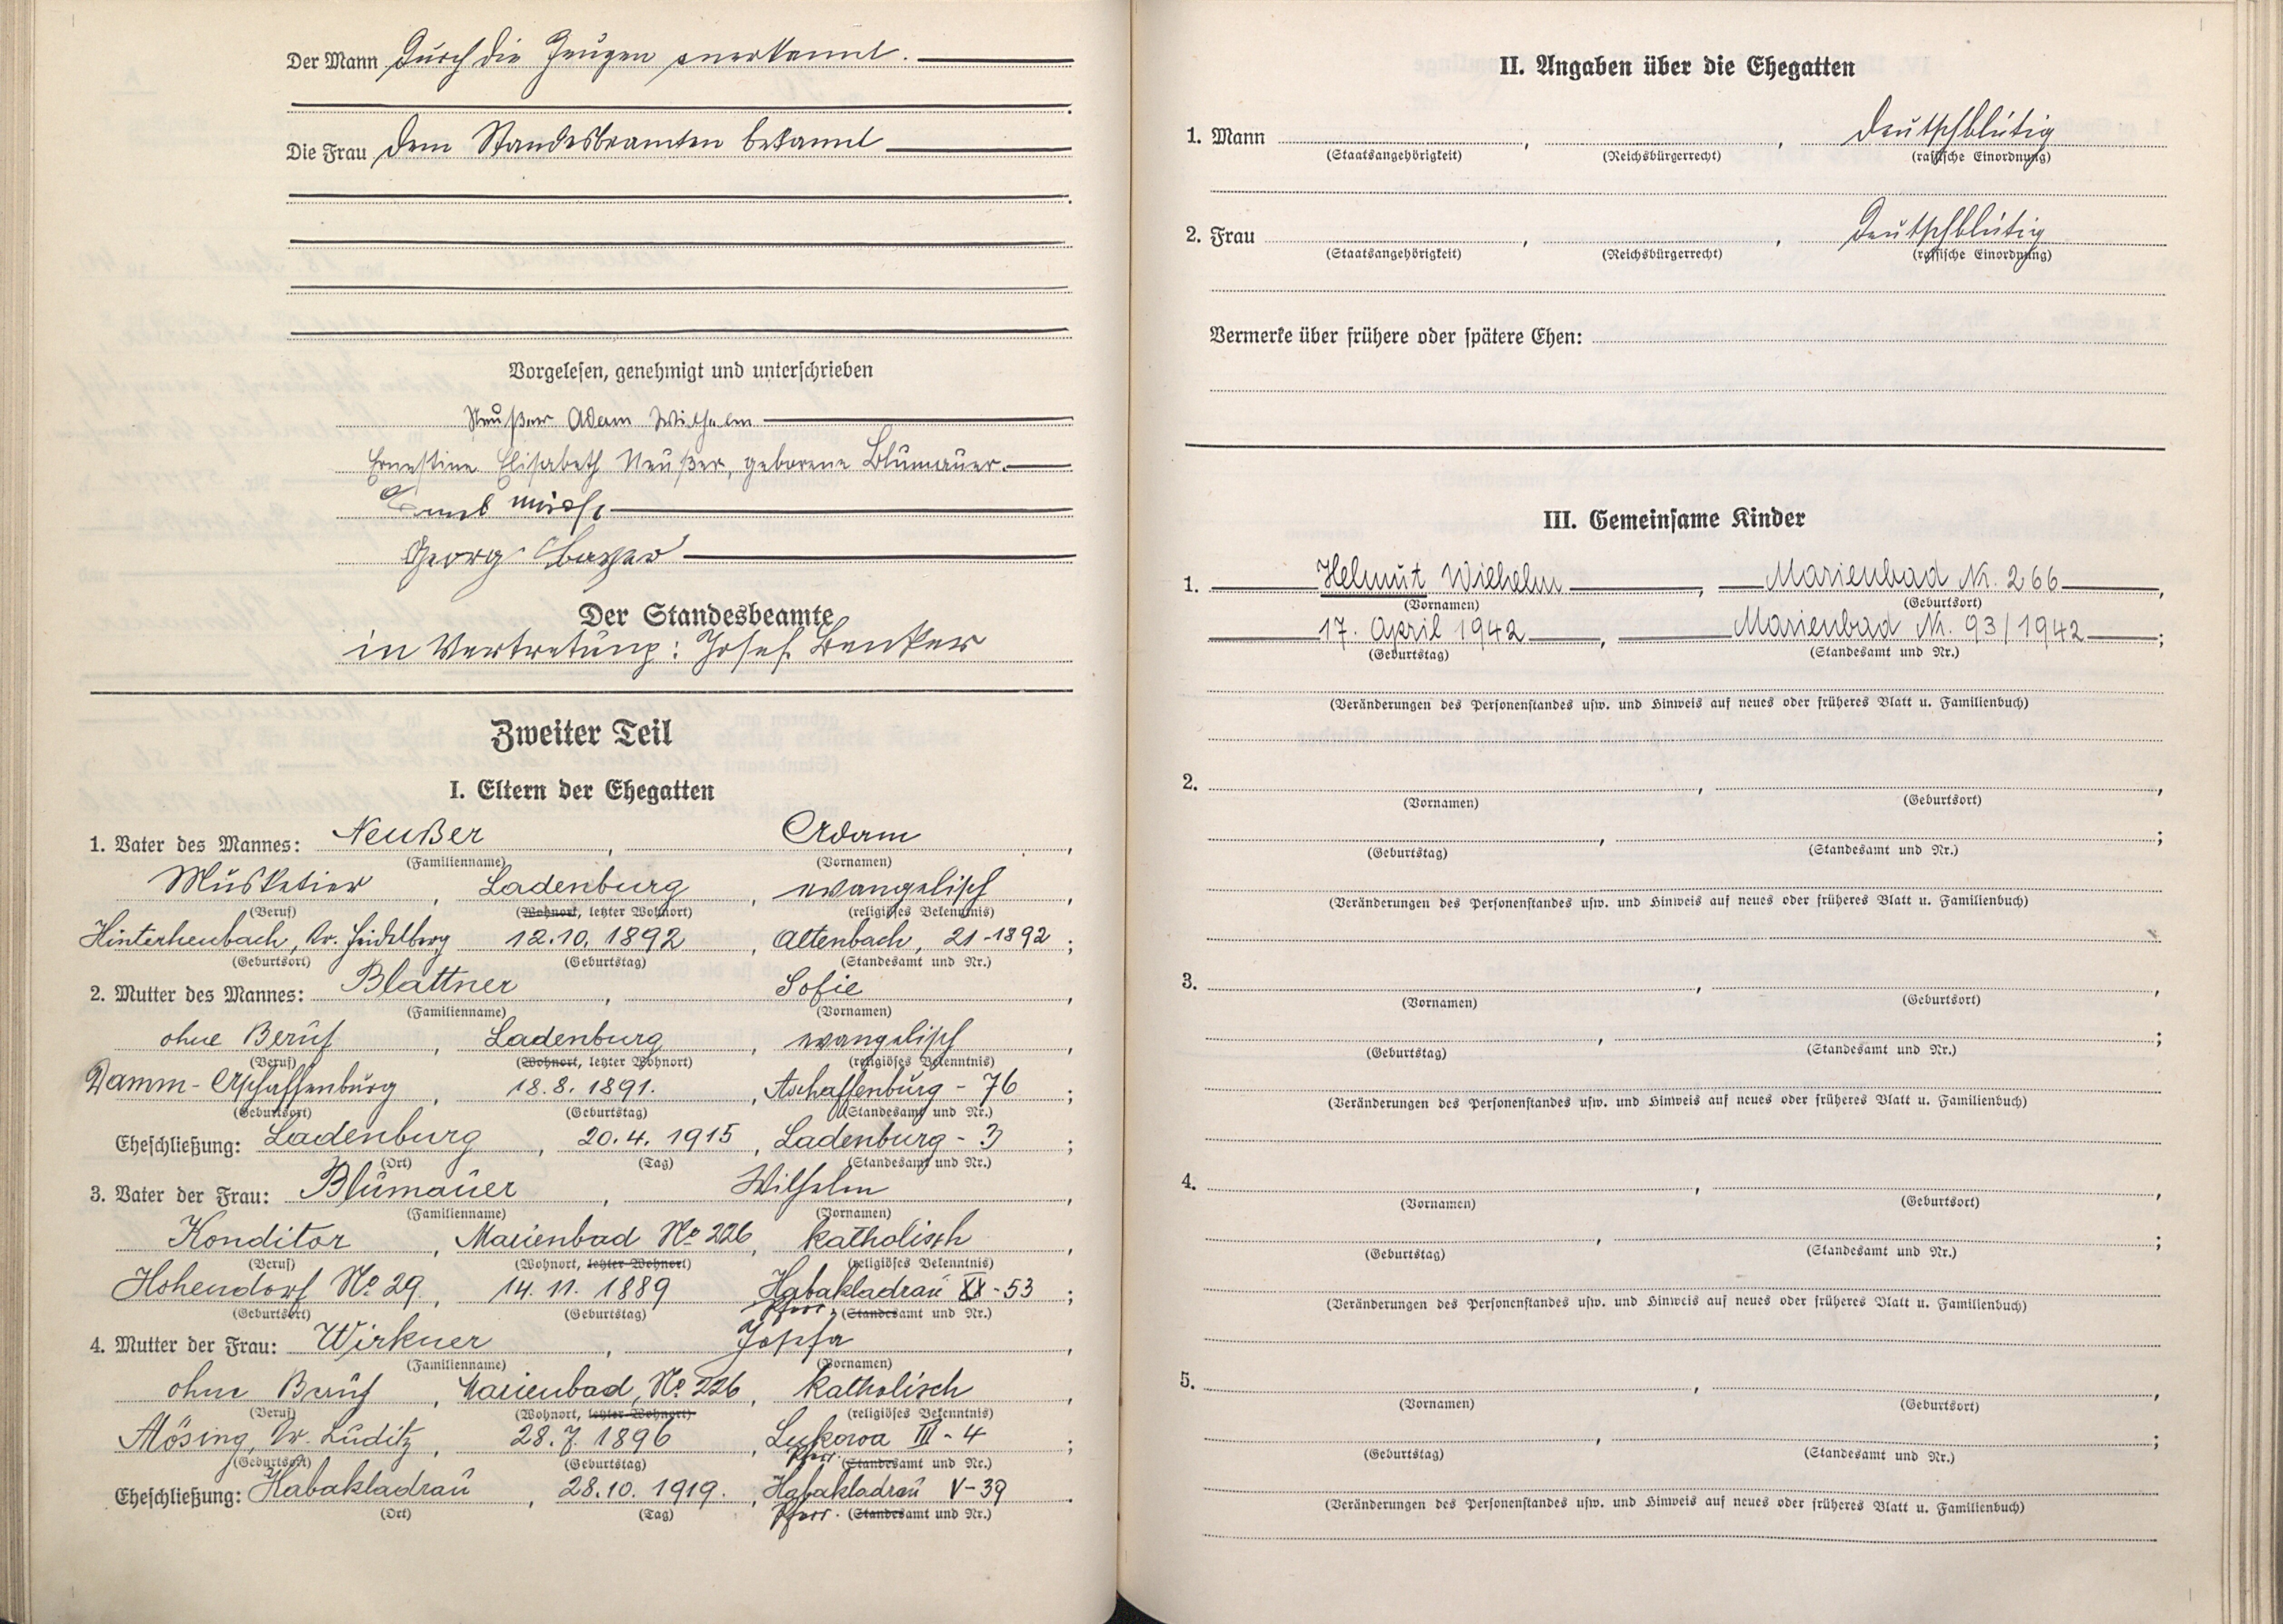 Der Mann durch die Zeugen anerkannt.
Die Frau dem Standesbeamten bekannt
Vorgelesen, genehmigt und unterschrieben
Neußer Adam Wilhelm
Ernestine Elisabeth Neußer, geborene Blumauer.
Georg
Der Standesbeamte
in Vertretung: Josef Benker
Zweiter Teil
I. Eltern der Ehegatten
1. Vater des Mannes: Neußer, Adam,
(Familienname) (Vornamen)
Musketier, Ladenburg, evangelisch,
(Beruf) (Wohnort, letzter Wohnort) (religiöses Bekenntnis)
Hinterheubach, Kr. Heidelberg 12.10.1892, Altenbach, 21-1892;
(Geburtsort) (Geburtstag) (Standesamt und Nr.)
2. Mutter des Mannes: Blattner, Sofie,
(Familienname) (Vornamen)
ohne Beruf, Ladenburg, evangelisch,
(Beruf) (Wohnort, letzter Wohnort) (religiöses Bekenntnis)
Damm-Aschaffenburg, 18.8.1891., Aschaffenburg - 76;
(Geburtsort) (Geburtstag) (Standesamt und Nr.)
Eheschließung: Ladenburg, 20.4.1915, Ladenburg - 3;
(Ort) (Tag) (Standesamt und Nr.)
3. Vater der Frau: Blumauer, Wilhelm,
(Familienname) (Vornamen)
Konditor, Marienbad No 226, katholisch,
(Beruf) (Wohnort, letzter Wohnort) (religiöses Bekenntnis)
Hohendorf No 29, 14.11.1889 Habakladrau XX-53;
(Geburtsort) (Geburtstag) Pfarr (Standesamt und Nr.)
4. Mutter der Frau: Wirkner, Josefa,
(Familienname) (Vornamen)
ohne Beruf, Marienbad, No 226, katholisch,
(Beruf) (Wohnort, letzter Wohnort) (religiöses Bekenntnis)
Mösing, Kr. Luditz, 28.7.1896, Lukowa III-4;
(Geburtsort) (Geburtstag) Pfarr. (Standesamt und Nr.)
Eheschließung: Habakladrau, 28.10.1919., Habakladrau V-39.
(Ort) (Tag) Pfarr. (Standesamt und Nr.)
II. Angaben über die Ehegatten
1. Mann , , deutschblütig
(Staatsangehörigkeit) (Reichsbürgerrecht) (rassische Einordnung)
2. Frau , , deutschblütig
(Staatsangehörigkeit) (Reichsbürgerrecht) (rassische Einordnung)
Vermerke über frühere oder spätere Ehen:
III. Gemeinsame Kinder
1. Helmut Wilhelm, Marienbad Nr. 266,
(Vornamen) (Geburtsort)
17. April 1942, Marienbad Nr. 93/1942;
(Geburtstag) (Standesamt und Nr.)
(Veränderungen des Personenstandes usw. und Hinweis auf neues oder früheres Blatt u. Familienbuch)
2. , ,
(Vornamen) (Geburtsort)
, ;
(Geburtstag) (Standesamt und Nr.)
(Veränderungen des Personenstandes usw. und Hinweis auf neues oder früheres Blatt u. Familienbuch)
3. , ,
(Vornamen) (Geburtsort)
, ;
(Geburtstag) (Standesamt und Nr.)
(Veränderungen des Personenstandes usw. und Hinweis auf neues oder früheres Blatt u. Familienbuch)
4. , ,
(Vornamen) (Geburtsort)
, ;
(Geburtstag) (Standesamt und Nr.)
(Veränderungen des Personenstandes usw. und Hinweis auf neues oder früheres Blatt u. Familienbuch)
5. , ,
(Vornamen) (Geburtsort)
, ;
(Geburtstag) (Standesamt und Nr.)
(Veränderungen des Personenstandes usw. und Hinweis auf neues oder früheres Blatt u. Familienbuch)